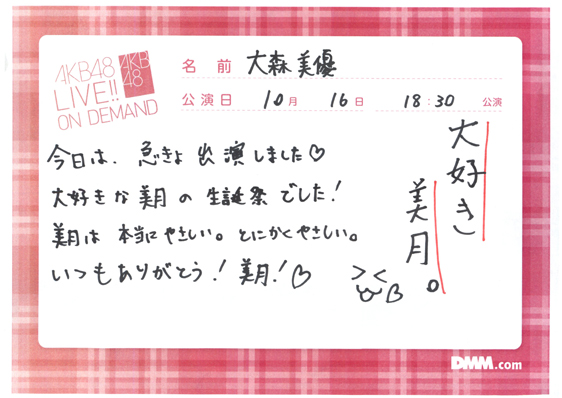 AKB48
LIVE!!
ON DEMAND
AKB
48
名 前 大森美優
公演日 10月 16日 18:30 公演
今日は、急きょ出演しました♡
大好きな美月の生誕祭でした!
美月は本当にやさしい。とにかくやさしい。
いつもありがとう!美月!♡
大好き
美月。
DMM.com